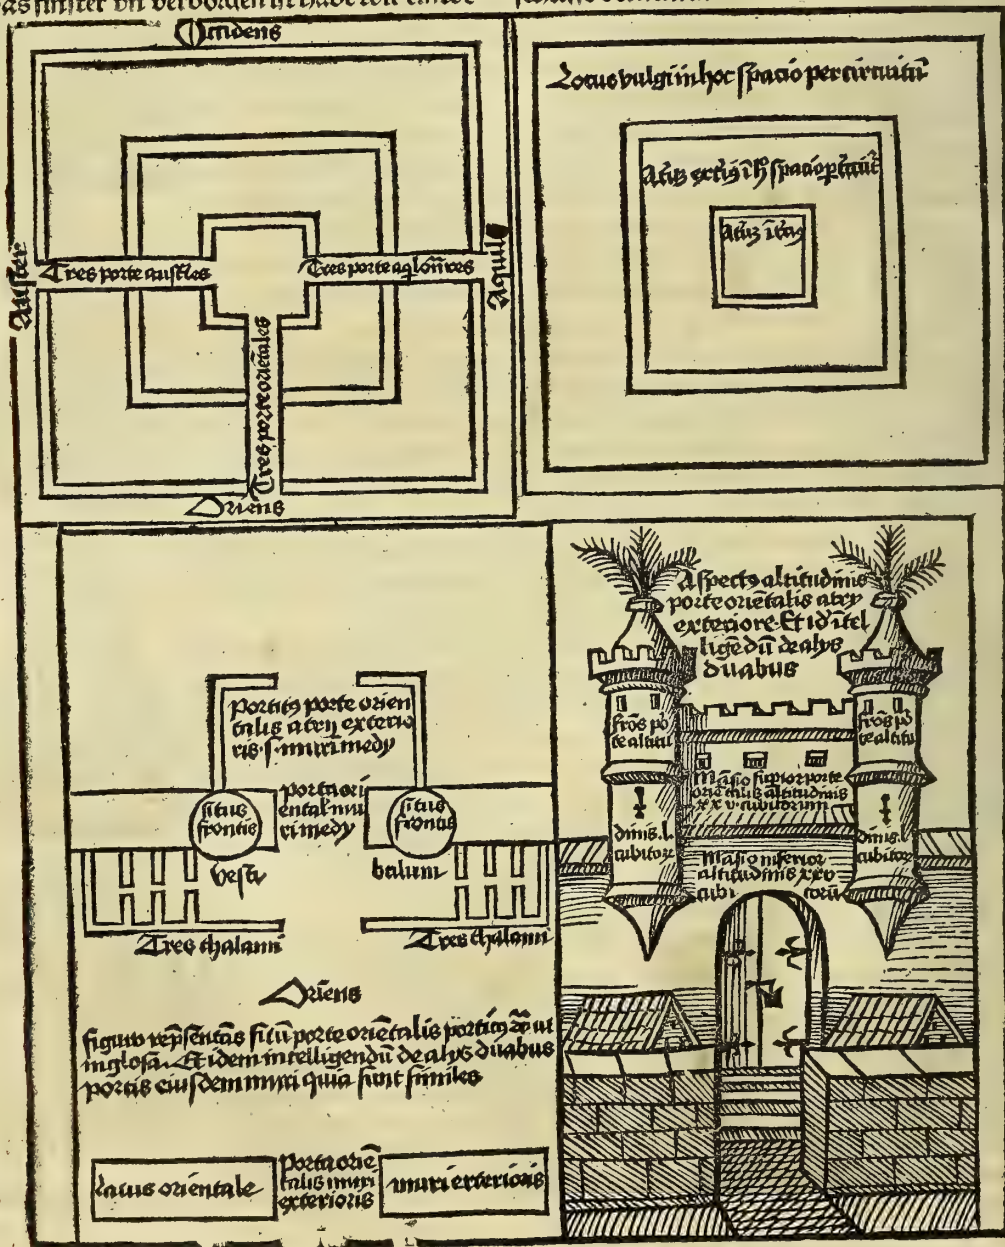 Occidens
Auster
Tres porte austᷣles
Tres porte aq̇lon̄res
Aquilo
Tres porte oriētales
Oriēns
Locus vulgi in hoc spacio per circuitū
Atriū
Atriū
Porticꝰ porte orien
talis atrij exterio
ris .s. muri medy
situs
frontis
porta ori
ental mu
ri medy
situs
frontis
vesti
bulum
Tres thalami
Tres thalami
Oriēns
figura rep̄sentās sitū porte oriētalis porticꝰ ut
in glosa. Et idem intelligendū de alijs duabus
portis eiusdem muri quia sunt similes
Latus orientale
Porta orie
talis muri
exterioris
muri exterioris
Aspectꝰ altitudinis
porte oriētalis atrij
exterioris. Et id' ītel
ligēdū de alijs
duabus
frōs por
te altitu
frōs por
te altitu
Māsio supior porte
oriētalis altitudinis
xxv cubitorum
dinis .l.
cubitorꝫ
dinis .l.
cubitorꝫ
Māsio inferior
altitudinis xxv
cubi torū